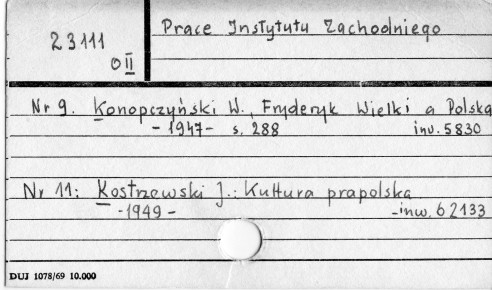 23111
O II
Prace Instytutu Zachodniego
Nr 9. Konopczyński W., Fryderyk Wielki a Polska
- 1947 - s. 288 inv. 5830
Nr 11: Kostrzewski J.: Kultura prapolska
- 1949 - - inw. 62133
DUJ 1078/69 10.000